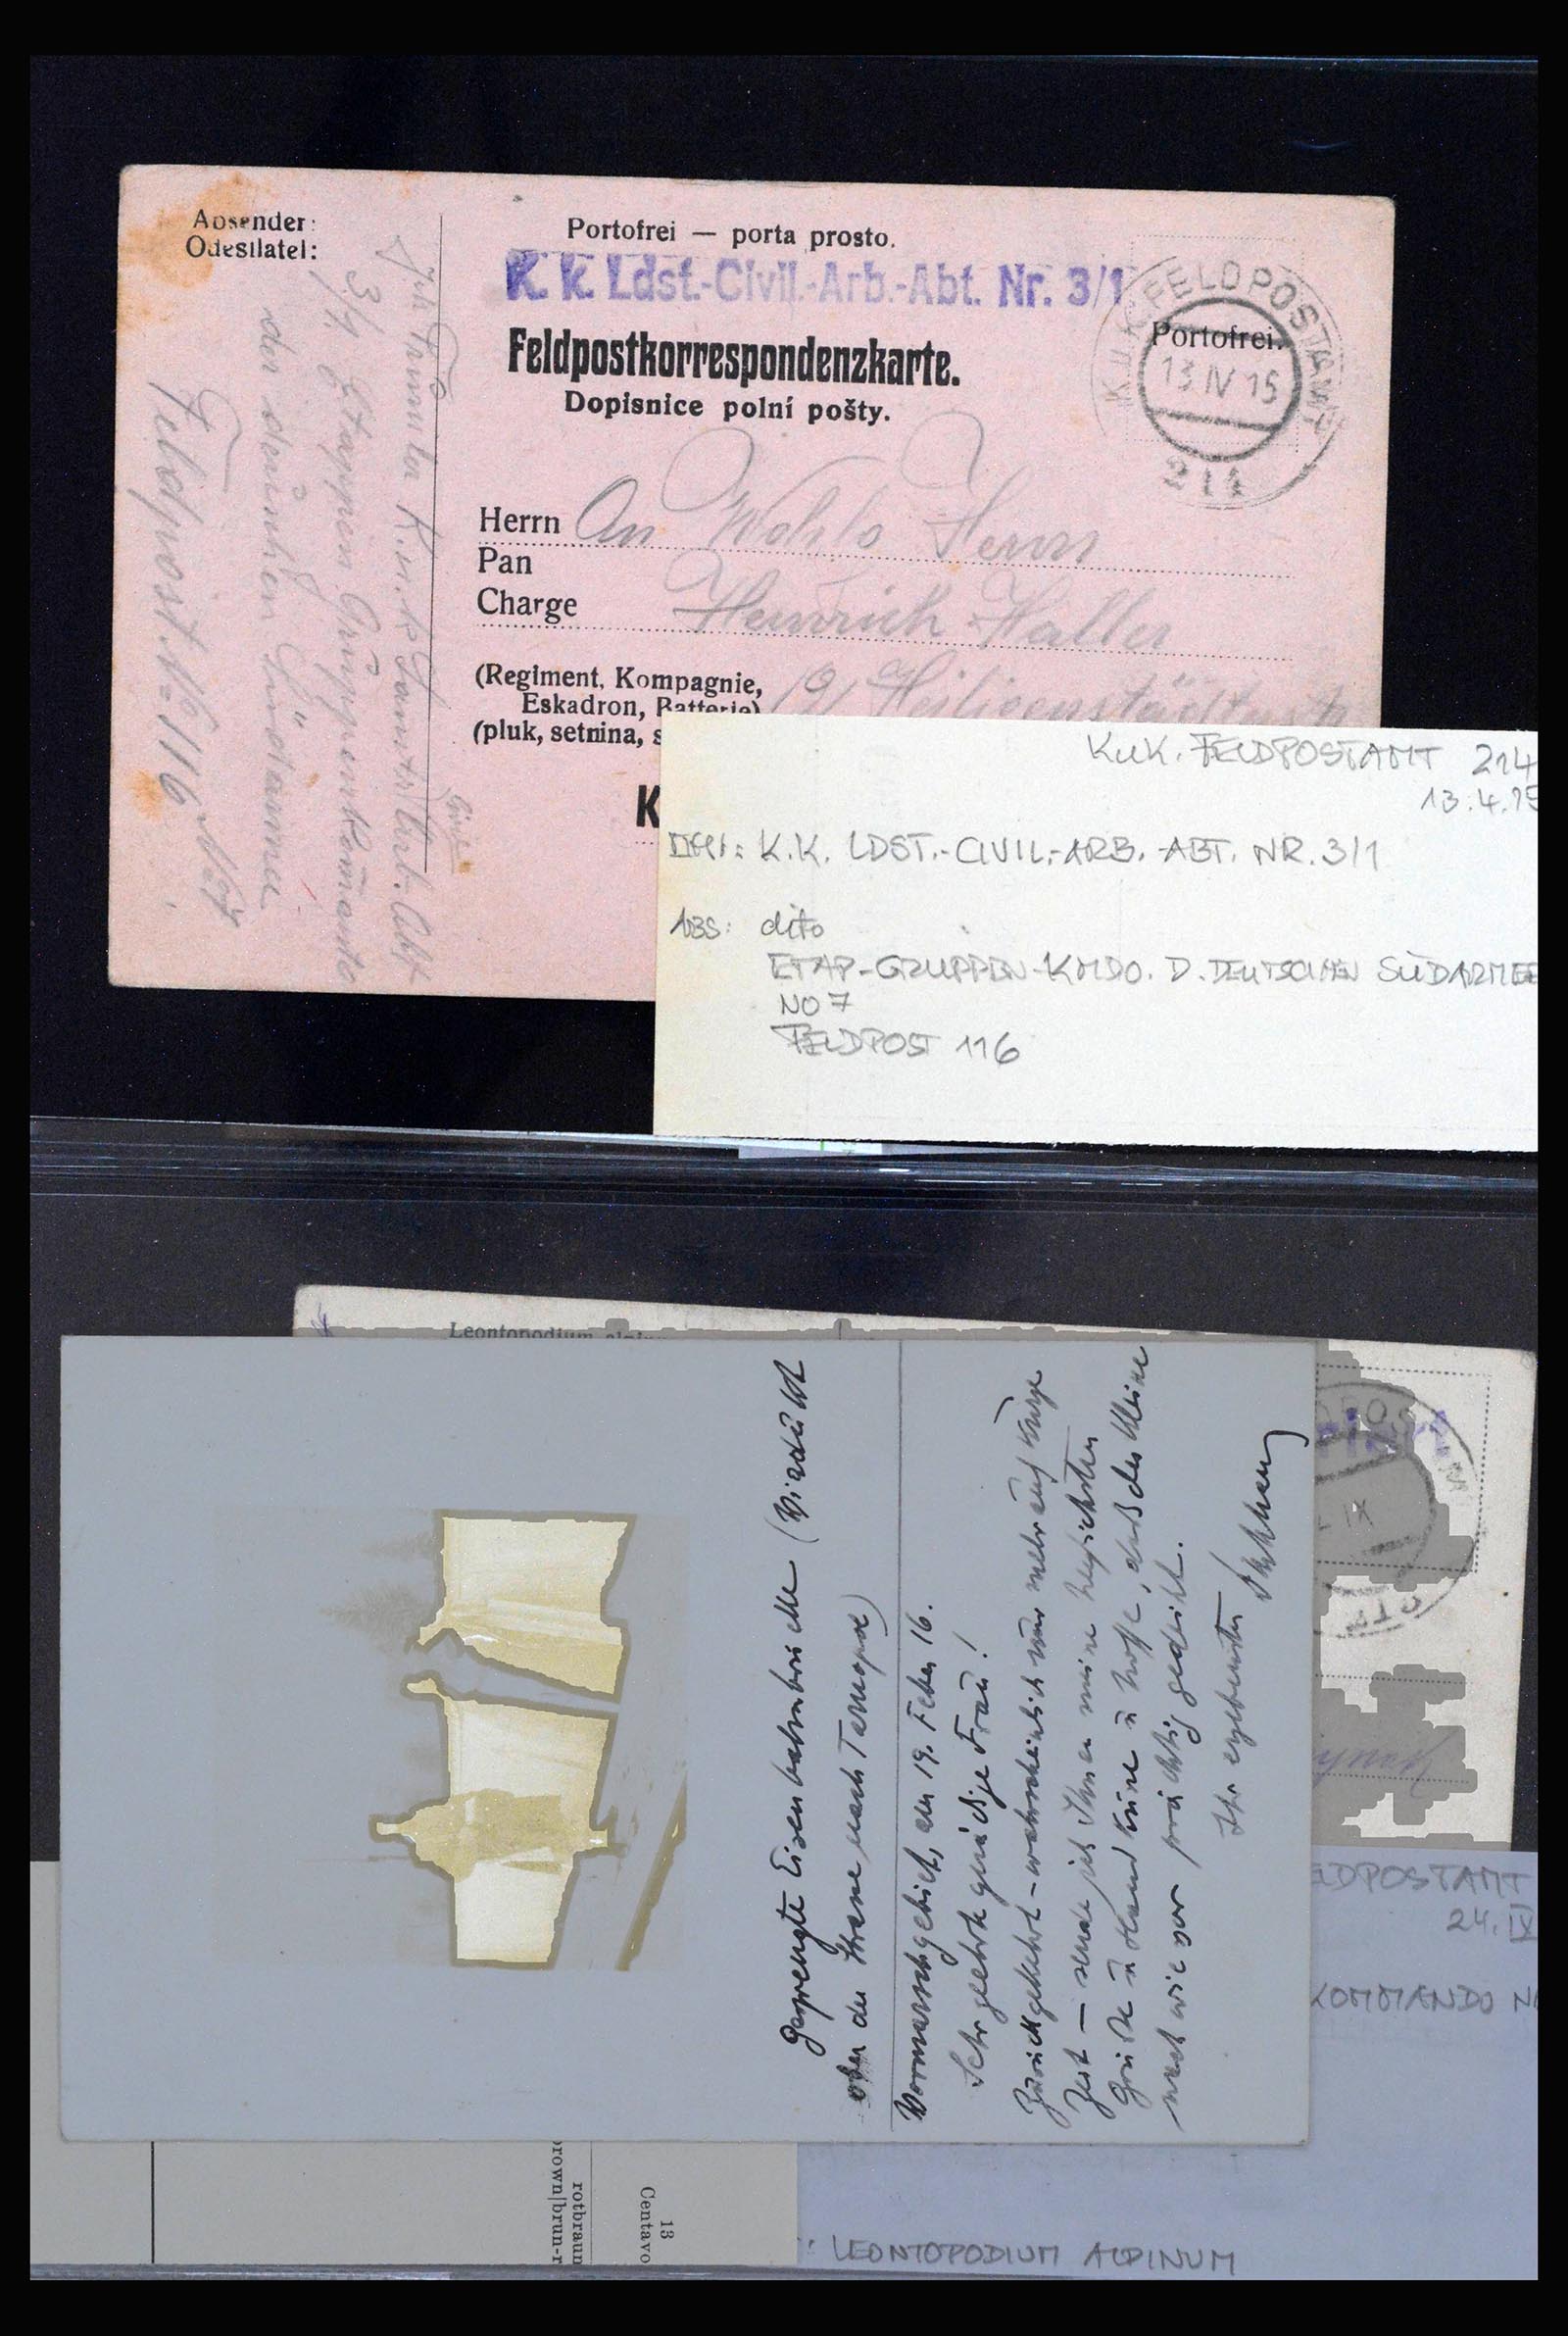 Absender:
Odesílatel:
Joh. Trumla K. u. k. Landst. Arb. Abt
Civil
3/1 Etappen Gruppenkomando
der deutschen Südarmee
Feldpost. № 116 № 7
Portofrei — porta prosto.
K. k. Ldst.-Civil.-Arb.-Abt. Nr. 3/1
Feldpostkorrespondenzkarte.
Dopisnice polní pošty.
K. u. K. FELDPOSTAMT
Portofrei.
13 IV 15
214
Herrn An Wohlb Herrn
Pan
Charge Heinrich Haller
(Regiment, Kompagnie,
Eskadron, Batterie)
(pluk, setnina, s
K
KUK. FELDPOSTAMT 214
13.4.15
K.K. LDST.-CIVIL.-ARB.-ABT. NR. 3/1
ABS: dito
ETAP-GRUPPEN-KMDO. D. DEUTSCHEN SÜDARMEE
NO 7
FELDPOST 116
Leontopodium alpin
Gesprengte Eisenbahnbrücke (Viadukt
ober der Strasse nach Tarnopol)
Vormarschgebiet, am 19. Feber 16.
Sehr geehrte gnädige Frau!
Zurückgekehrt – wahrscheinlich nur mehr auf kurze
Zeit — sende ich Ihnen meine herzlichsten
Grüsse u. Handküsse u. hoffe, dass der Kleine
nach wie vor prächtig gedeiht.
Ihr ergebenster
IX
LDPOSTAMT
24. IX
KOMMANDO N
rown|brun-r
rotbraun
Centavo
13
LEONTOPODIUM ALPINUM